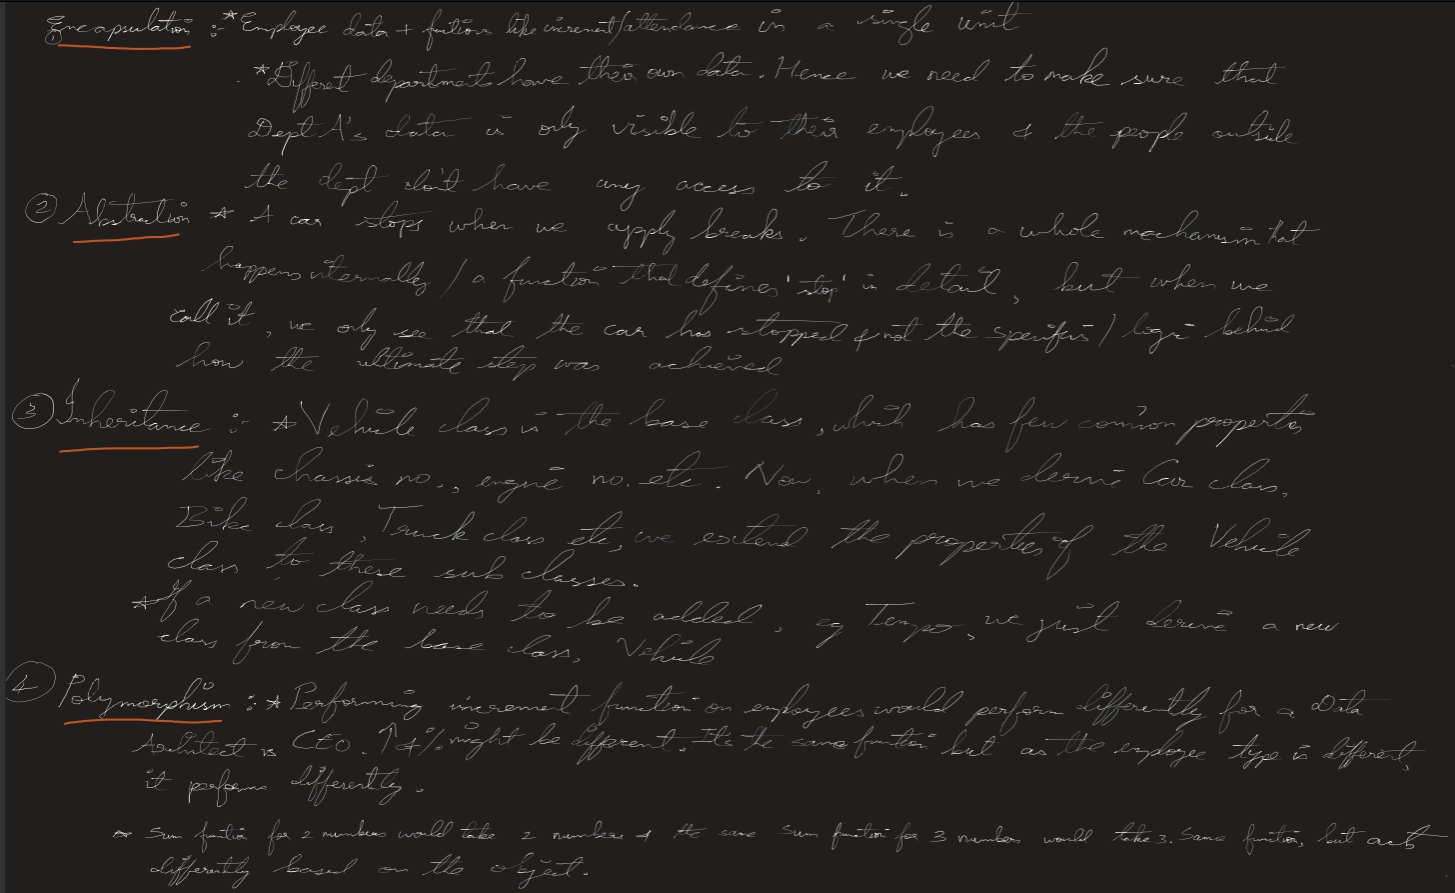 ① Encapsulation :- * Employee data + functions like increment/attendance in a single unit
* Different departments have their own data. Hence we need to make sure that
Dept A's data is only visible to their employees & the people outside
the dept don't have any access to it.
② Abstraction * A car stops when we apply breaks. There is a whole mechanism that
happens internally / a function that defines 'stop' in detail, but when we
call it, we only see that the car has stopped & not the specifics / logic behind
how the ultimate step was achieved
③ Inheritance :- * Vehicle class is the base class, which has few common properties
like chassis no., engine no. etc. Now, when we derive Car class,
Bike class, Truck class etc, we extend the properties of the Vehicle
class to these sub classes.
* If a new class needs to be added, eg Tempo, we just derive a new
class from the base class, Vehicle
④ Polymorphism :- * Performing increment function on employees would perform differently for a Data
Architect vs CEO. ↑ & % might be different. It's the same function but as the employee type is different,
it performs differently.
* Sum function for 2 numbers would take 2 numbers & the same sum function for 3 numbers would take 3. Same function, but acts
differently based on the object.